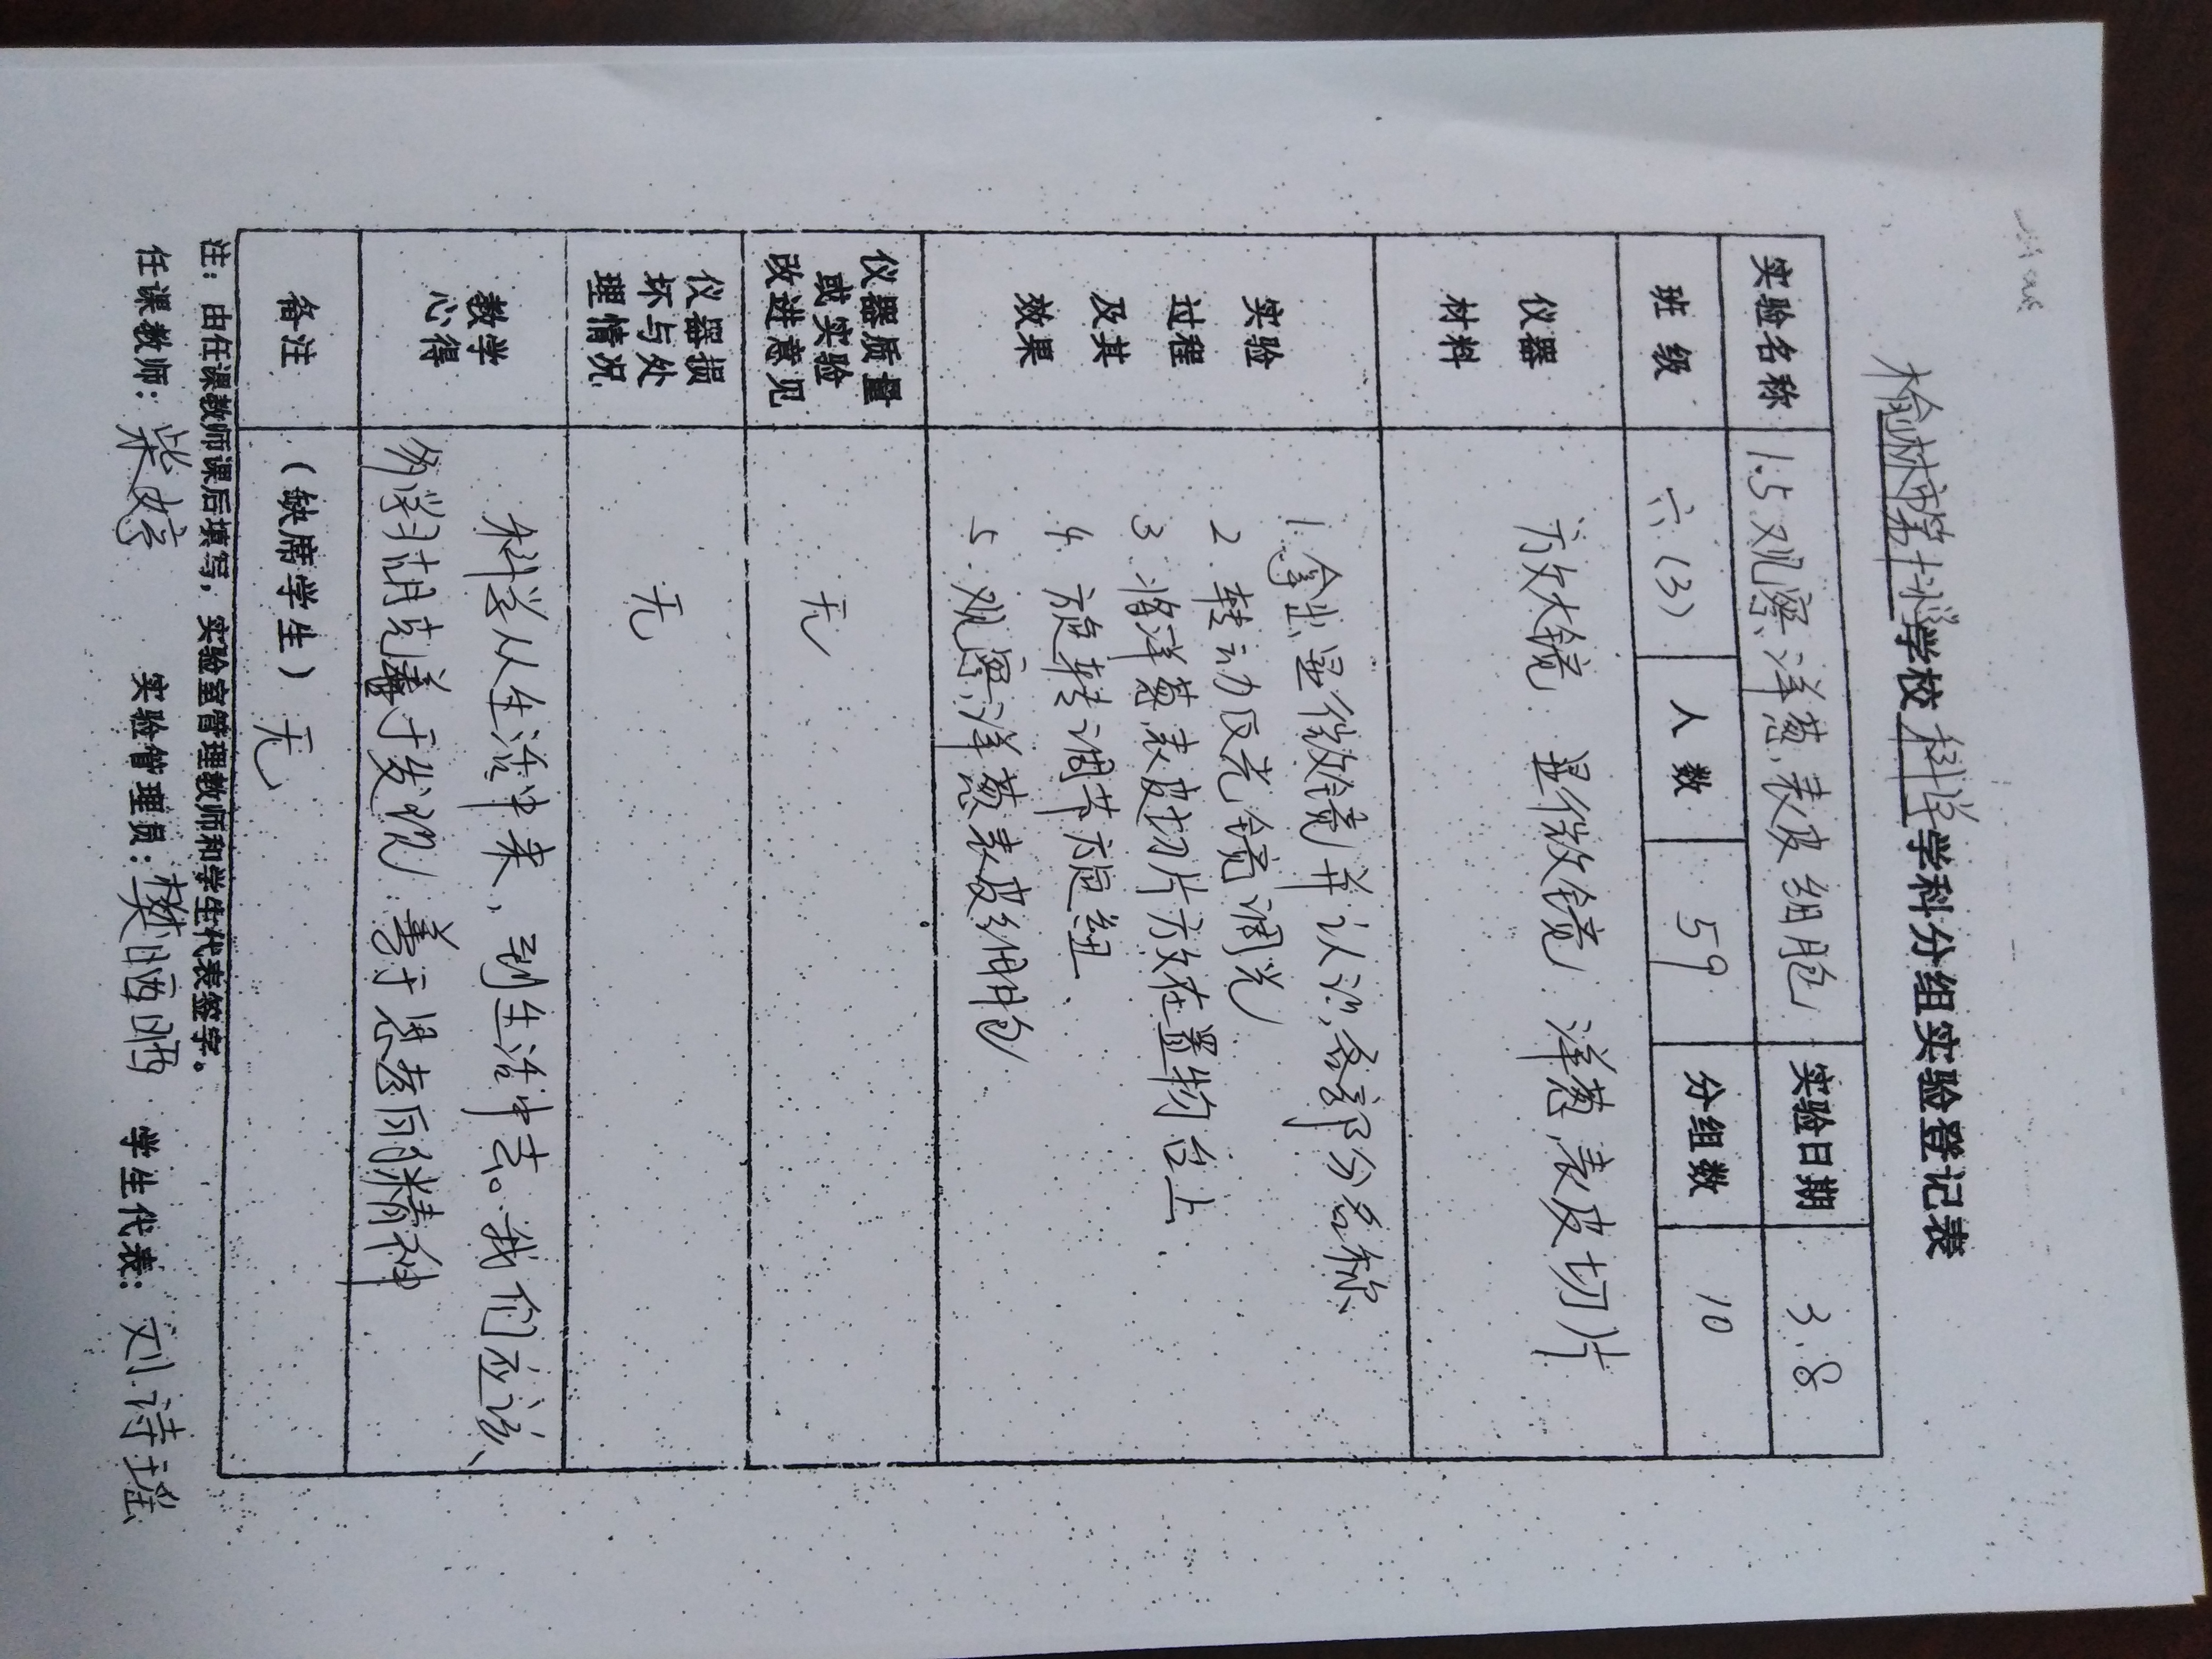 榆林市第十小学学校科学学科分组实验登记表
实验名称 1.5观察洋葱表皮细胞 实验日期 3.8
班级 六(3) 人数 59 分组数 10
仪器材料 放大镜 显微镜 洋葱表皮切片
实验过程及其效果
1. 拿出显微镜并认识各部分名称
2. 转动反光镜调光
3. 将洋葱表皮切片放在置物台上.
4. 旋转调节旋纽.
5. 观察洋葱表皮细胞
仪器质量或实验改进意见 无
仪器损坏与处理情况 无
教学心得
科学从生活中来,到生活中去。我们应该
多学习胡克善于发现.善于思考的精神
备注 (缺席学生) 无
注:由任课教师课后填写,实验室管理教师和学生代表签字。
任课教师:柴婷 实验管理员:樊丽丽 学生代表:刘诗瑶